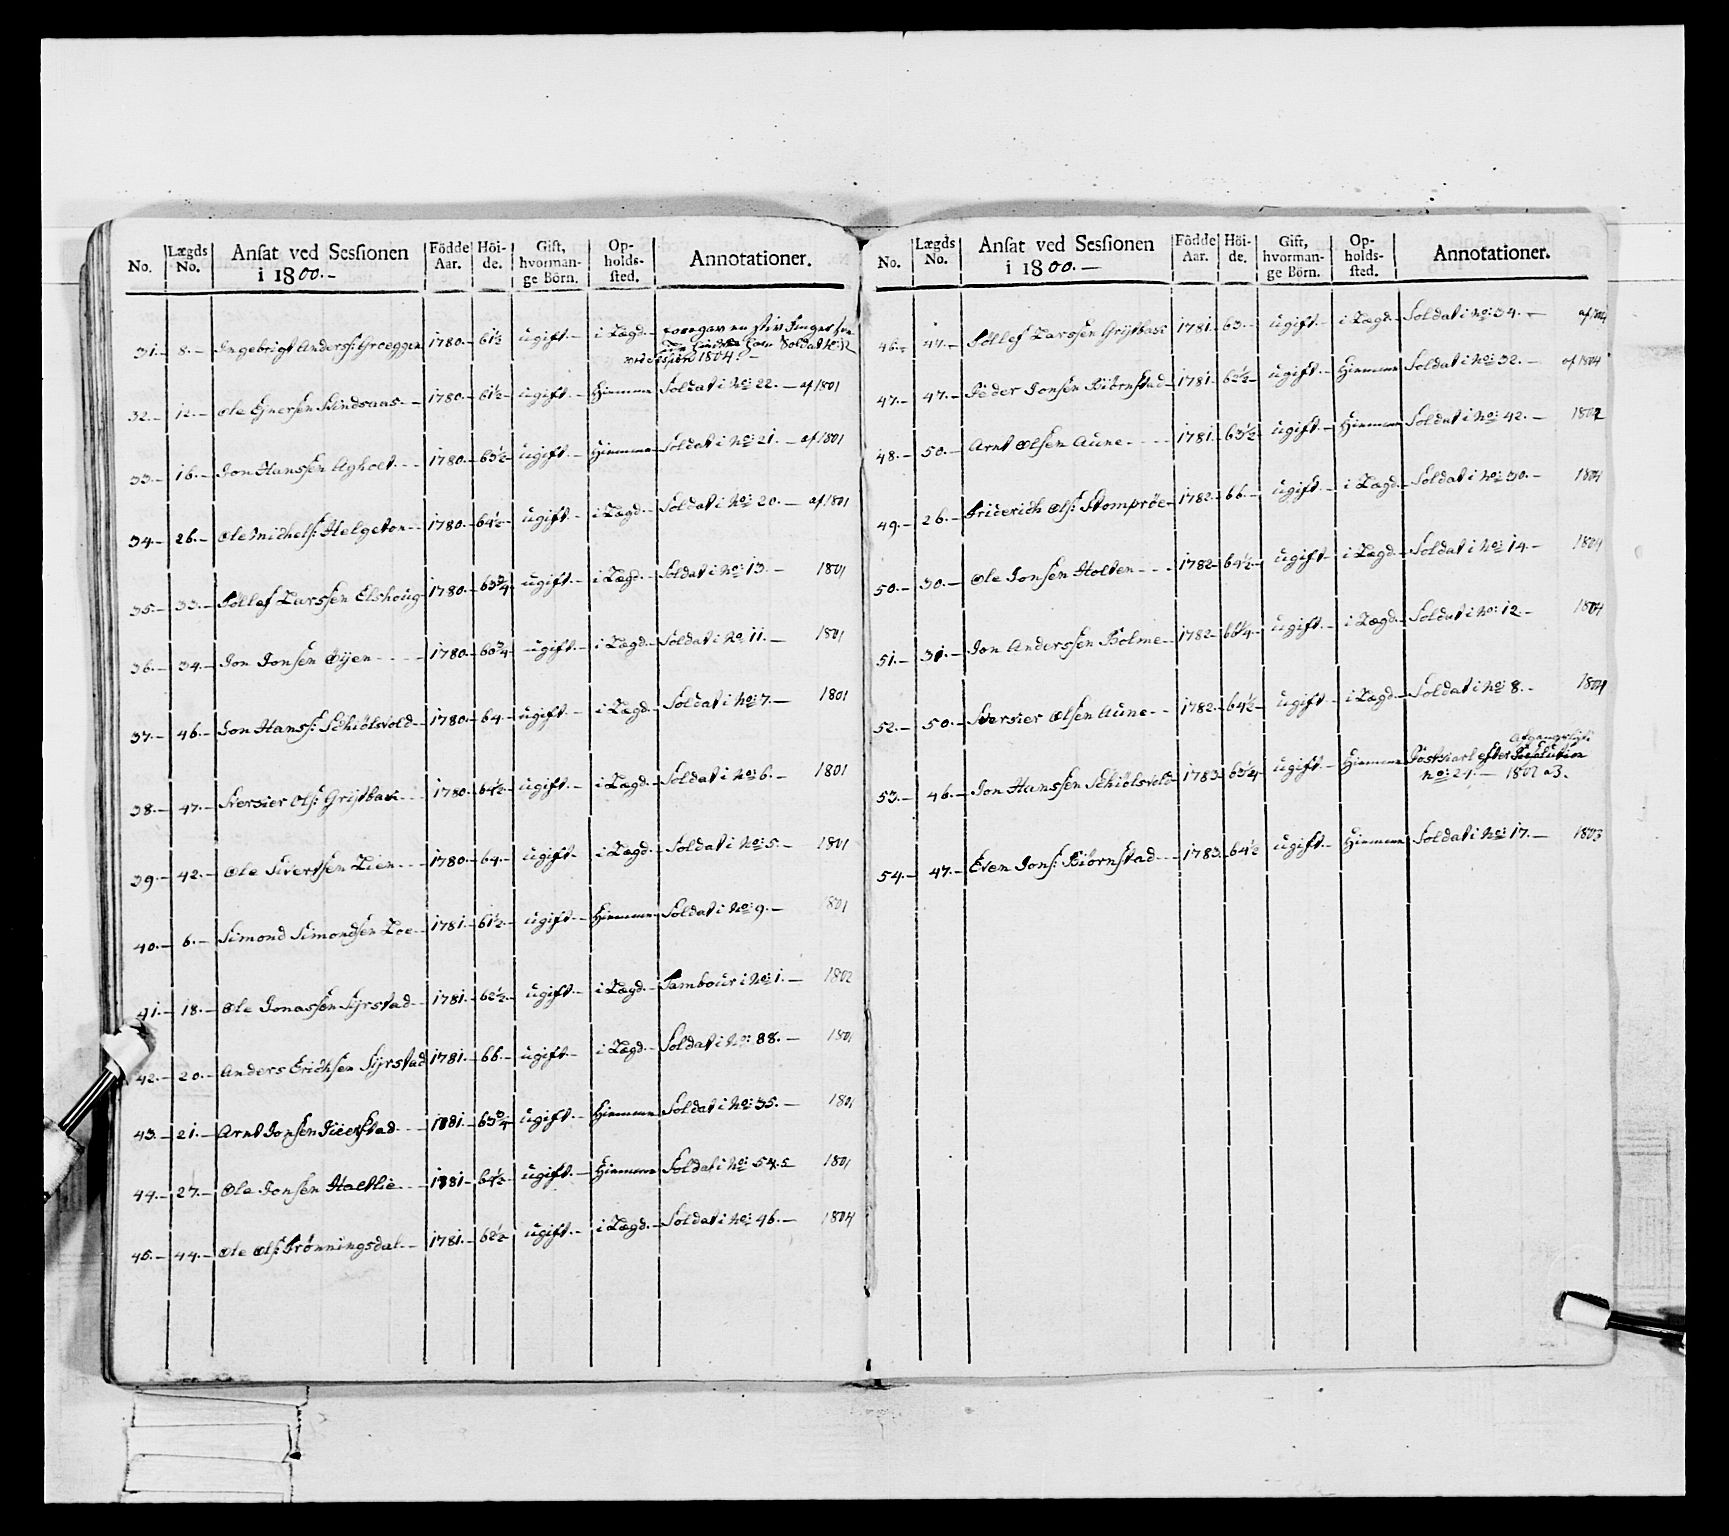 No. Lægds No. Ansat ved Sessionen i 1800.- Födde Aar. Höi-de. Gift, hvorman-ge Börn. Op-holds-sted. Annotationer.
31.- 8.- Ingebrigt Anders: 1780.- 61½ ugift.- i Lægd.- foregav en stiv Finger
Soldat No: 12
ved Session 1804.-
32.- 12.- Ole Ejnersen 1780.- 61½- ugift.- Hiemme Soldat i No: 22.- af 1801
33.- 16.- Jon Hanssen Agholt 1780.- 63½- ugift.- Hiemme Soldat i No: 21.- af 1801
34.- 26.- Ole Michels: Helgeton 1780.- 64½- ugift.- i Lægd.- Soldat i No: 20.- af 1801
35.- 33.- Tollef Larssen Elshoug 1780.- 63¾ ugift.- i Lægd.- Soldat i No: 13.- 1801
36.- 34.- Jon Jonsen Øyen 1780.- 60¾ ugift.- i Lægd.- Soldat i No: 11.- 1801
37.- 46.- Jon Hans: Schiölsvold 1780.- 64.- ugift.- i Lægd.- Soldat i No: 7.- 1801
38.- 47.- Sversier Ols: Grijtbak 1780.- 64½- ugift.- i Lægd.- Soldat i No: 6.- 1801
39.- 42.- Ole Sivertsen Lien 1780.- 64.- ugift.- i Lægd.- Soldat i No: 5.- 1801
40.- 6.- Simond Simondsen Loe 1781.- 61½- ugift.- Hiemme Soldat i No: 9.- 1801
41.- 18.- Ole Jonassen Syrstad 1781.- 62½- ugift.- i Lægd.- Tambour i No: 1.- 1802
42.- 20.- Anders Erichsen Syrstad 1781.- 66.- ugift.- i Lægd.- Soldat i No: 88.- 1801
43.- 21.- Arnt Jonsen 1781.- 63¾ ugift.- Hiemme Soldat i No: 35.- 1801
44.- 27.- Ole Jonsen Holtlie 1781.- 64½ ugift.- Hiemme Soldat i No: 54. 1801
45.- 44.- Ole Ols: Trönningsdal 1781.- 62½ ugift.- i Lægd.- Soldat i No: 46.- 1804
No. Lægds No. Ansat ved Sessionen i 1800.- Födde Aar. Höi-de. Gift, hvorman-ge Börn. Op-holds-sted. Annotationer.
46.- 47.- Tollef Larssen Grijtbak 1781.- 63.- ugift.- i Lægd.- Soldat i No: 34.- af 1804
47.- 47.- Peder Jonsen Biörnstad 1781.- 62½- ugift.- Hiemme Soldat i No: 32.- af 1804
48.- 50.- Arnt Olsen Aune 1781.- 63½ ugift.- Hiemme Soldat i No: 42.- 1802
49.- 26.- Friderich Ols: Stompröe 1782.- 66.- ugift.- i Lægd.- Soldat i No: 30.- 1801
50.- 30.- Ole Jonsen Holten 1782.- 64½- ugift.- i Lægd.- Soldat i No: 14.- 1801
51.- 31.- Jon Anderssen Holme 1782.- ugift.- i Lægd.- Soldat i No: 12.- 1804
52.- 50.- Sversier Olsen Aune 1782.- 64½- ugift.- i Lægd.- Soldat i No: 8.- 1801
53.- 46.- Jon Hanssen Schiölsvold 1783.- ugift.- Hiemme Postkarl efter Resolution
No: 24.- 1802
54.- 47.- Even Jons: Biörnstad 1783.- 64½ ugift.- Hiemme Soldat i No: 17.- 1803